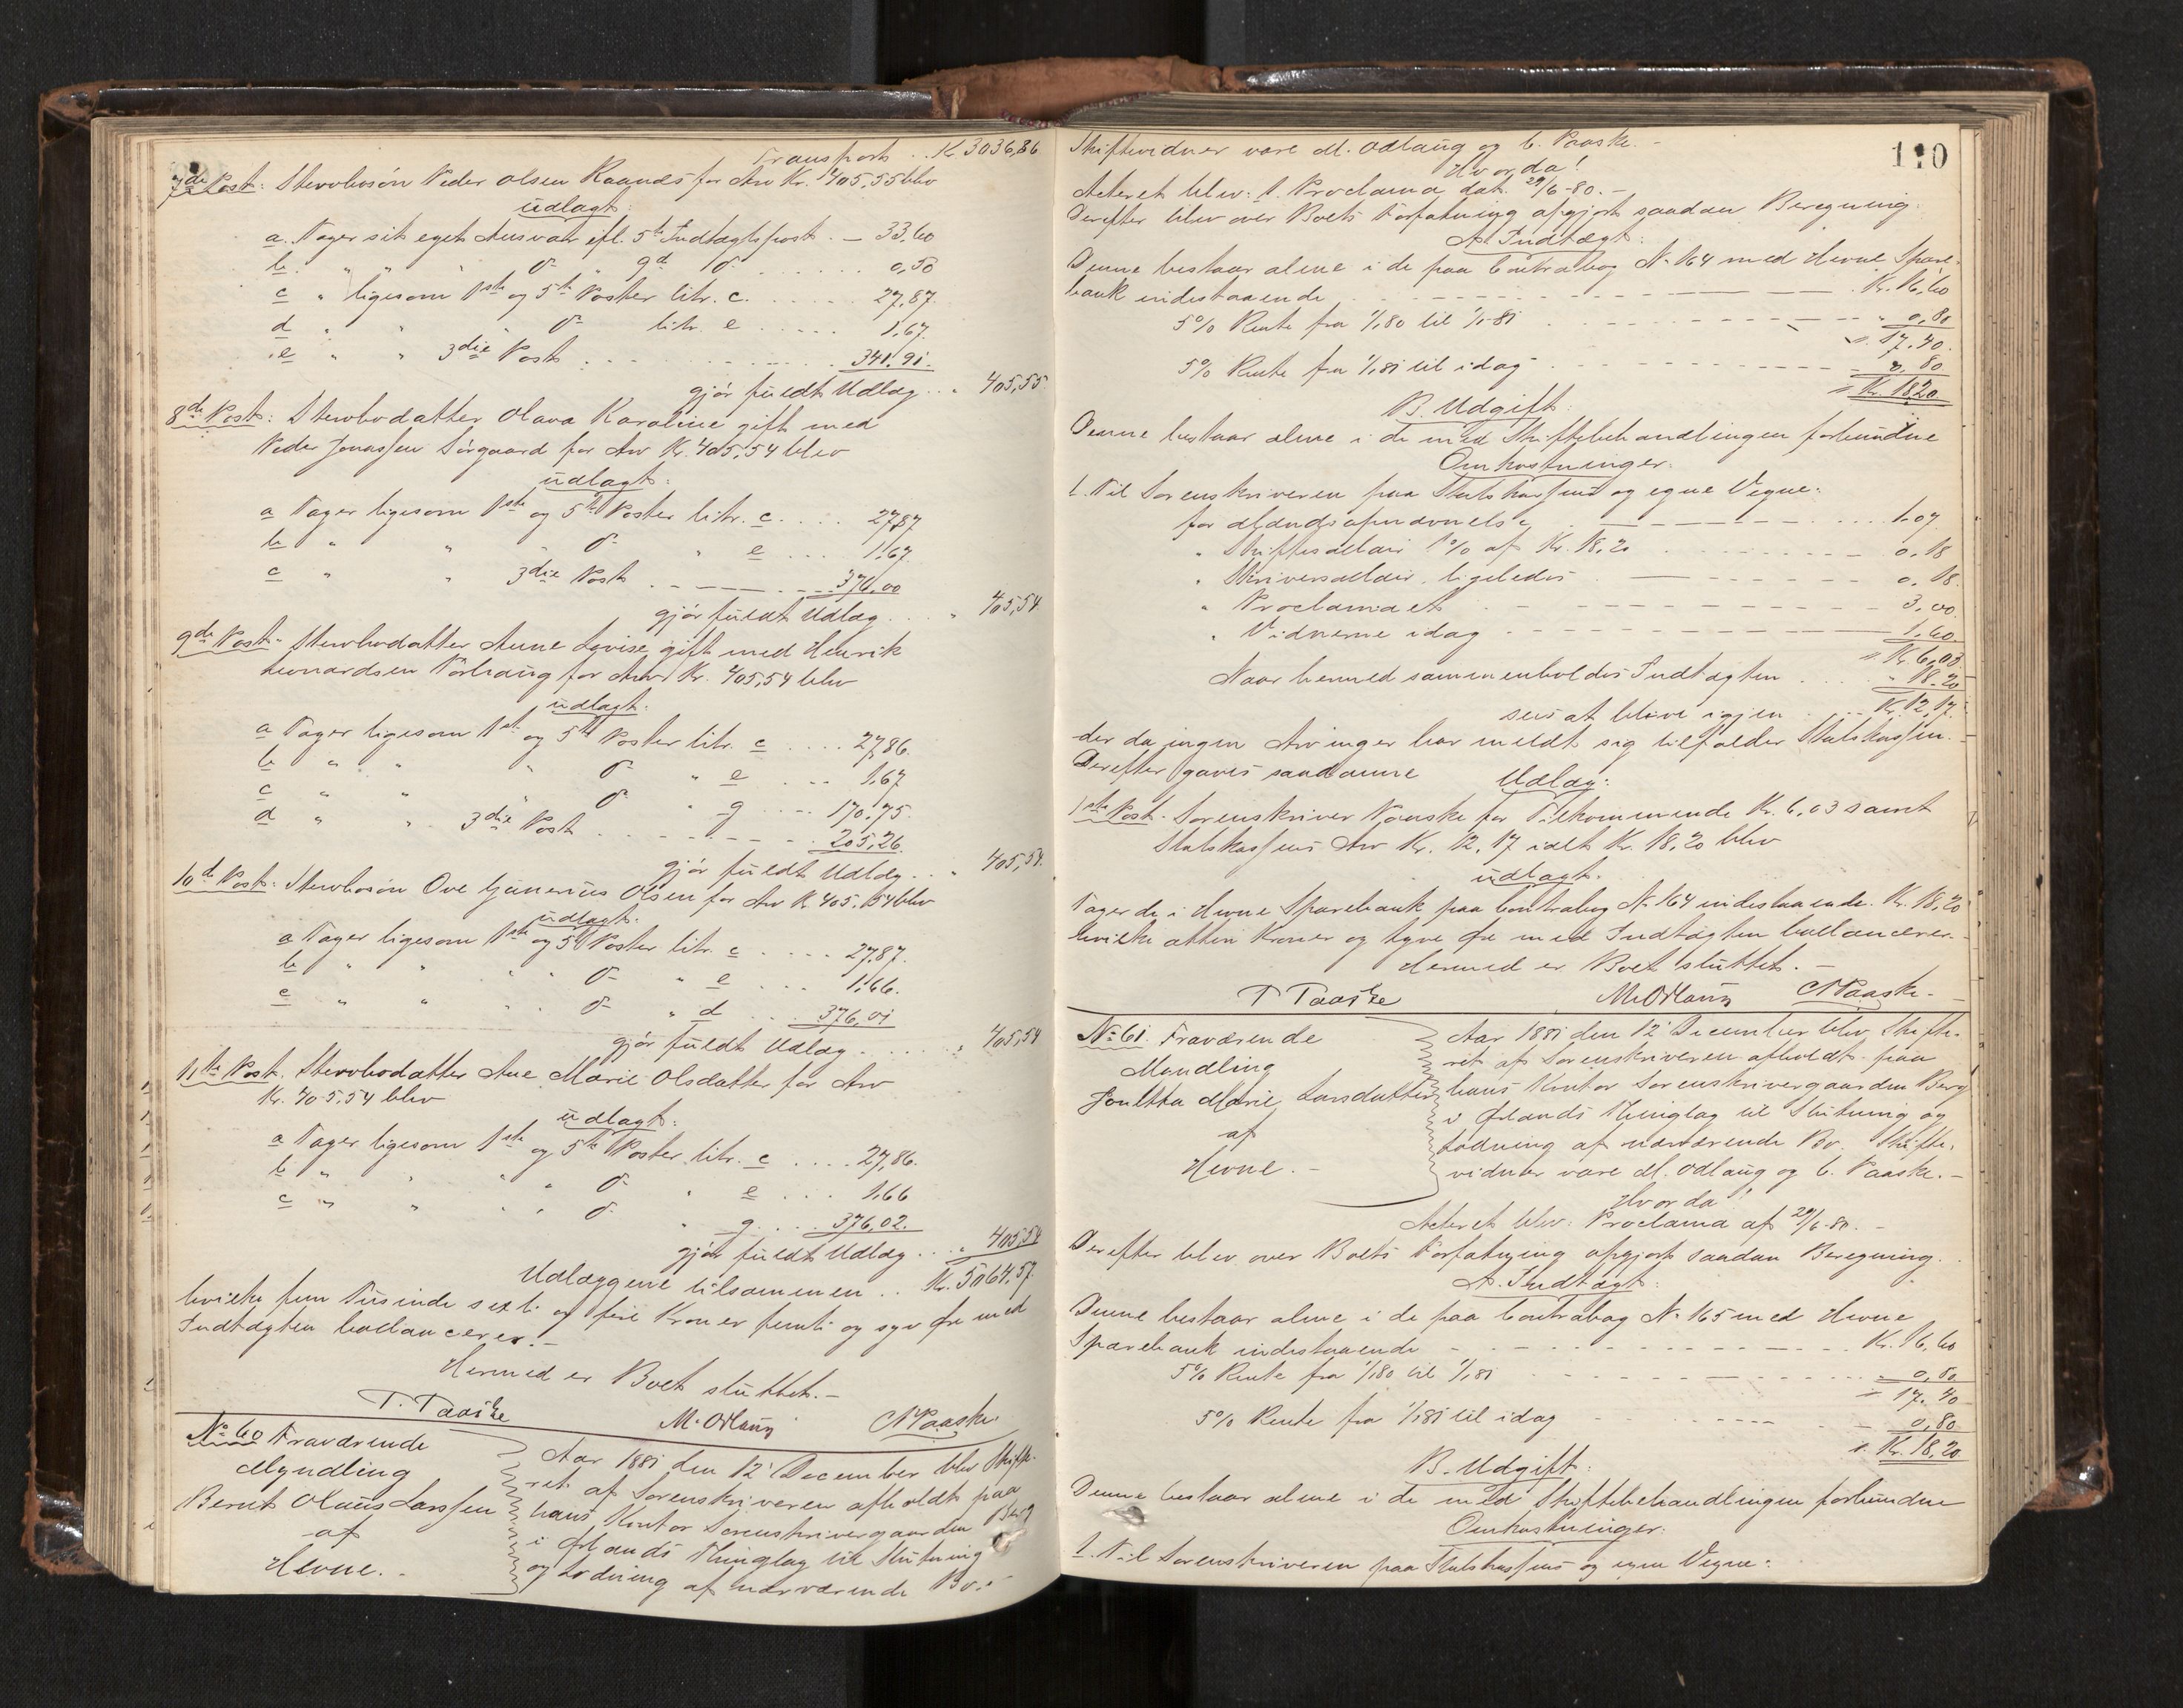 Transport .. Kr. 3036,86
7de Post: Stervbosøn Peder Olsen Raanes for Arv Kr. 405,55 blev
udlagt:
a. Tager sit eget Ansvar ifl. 5te Indtægtspost . — 33,60
b. " " " do " 9de do ...... 0,50
c " ligesom 1ste og 5te Poster litr. c. ..... 27,87.
d " " " do litr. e ..... 1,67.
e " " 3die Post ......... 341,91.
gjør fuldt Udlæg .. " 405,55
8de Post: Stervbodatter Olava Karoline gift med
Peder Jonassen Sørgaard for Arv Kr. 405,54 blev
udlagt:
a Tager ligesom 1ste og 5te Poster litr. c. ... 27,87
b " " " do " e ... 1,67
c " " 3die Post ......... 376,00
gjør fuldt Udlæg ... " 405,54
9de Post. Stervbodatter Anne Lovise gift med Henrik
Leonardsen for Arv Kr. 405,54 blev
udlagt:
a Tager ligesom 1ste og 5te Poster litr. c .... 27,86.
b " " " do " e ... 1,67
c " " " do " g ... 170,75.
d " " 3die Post ......... 205,26.
gjør fuldt Udlæg .. " 405,54.
10de Post: Stervbosøn Ove Gunerius Olsen for Arv K. 405.54 blev
udlagt.
a Tager ligesom 1ste og 5te Poster litr. c .... 27,87.
b " " " " do " e ... 1,66.
c " " " do " d ... 376,01
gjør fuldt Udlæg ...... " 405,54
11te Post. Stervbodatter Ane Marie Olsdatter for Arv
Kr. 405,54 blev
udlagt:
a Tager ligesom 1ste og 5te Poster litr. c .... 27,86.
b " " " " do " e ... 1,66
c " " " " do " g .... 376,02.
gjør fuldt Udlæg ... " 405,54
Udlæggene tilsammen .. Kr. 5064,57.
hvilke fem Tusinde sexti og fire Kroner femti og syv Øre med
Indtægten ballancerer.—
Hermed er Boet sluttet.—
T. Paaske M. Odlaug C Paaske.
No 60 Fraværende
Myndling
Bernt Olaus Larssen
af
Hevne. -
Aar 1881 den 12' December blev Skifte-
ret af Sorenskriveren afholdt paa
hans Kontor Sorenskrivergaarden Berg
i Ørlands Thinglag til Slutning
og Lodning af nærværende Bo.
110
Skiftevidner vare M. Odlaug og C. Paaske. -
Hvorda!
Acteret blev: 1. Proclama dat. 29/6-80. -
Derefter blev over Boets Forfatning afgjort saadan Beregning:
A. Indtægt:
Denne bestaar alene i de paa Contrabog No 164 med Hevne Spare-
bank indestaaende ......... Kr. 16,60
5% Rente fra 1/1 80 til 1/1-81 ......... " 0,80
" 17.40.
5% Rente fra 1/1 81 til idag ......... 0,80
" Kr. 18,20
B. Udgift:
Denne bestaar alene i de med Skiftebehandlingen forbundne
Omkostninger:
1. Til Sorenskriveren paa Statskassens og egne Vegne:
for Mændsopnævnelse ......... 1.07
" Skiftesallair 1% af Kr. 18,20 ......... 0,18
" Skriversallair ligeledes ......... 0,18.
" Proclamaet ......... 3,00
" Vidnerne idag ......... 1,60
" Kr. 6,03.
Naar hermed sammenholdes Indtægten .... " 18,20
sees at blive igjen .... Kr. 12,17.
der da ingen Arvinger har meldt sig tilfalder Statskassen. -
Derefter gaves saadanne Udlæg:
1ste Post. Sorenskriver Paaske for Tilkommende Kr. 6,03 samt
Statskassens Arv Kr. 12,17 ialt Kr. 18,20 blev
udlagt.
Tager de i Hevne Sparebank paa Contrabog No 164 indestaaende Kr. 18,20
hvilke atten Kroner og tyve Øre med Indtægten ballancerer.
Hermed er Boet sluttet. —
T Paaske M. Odlaug C Paaske. -
No 61. Fraværende
Myndling
Marie Larsdatter
af
Hevne. -
Aar 1881 den 12' December blev Skifte-
ret af Sorenskriveren afholdt paa
hans Kontor Sorenskrivergaarden Berg
i Ørlands Thinglag til Slutning og
Lodning af nærværende Bo. Skifte-
vidner vare M. Odlaug og C. Paaske. -
Hvorda!
Acteret blev: Proclama af 29/6-80. -
Derefter blev over Boets Forfatning afgjort saadan Beregning.
A. Indtægt:
Denne bestaar alene i de paa Contrabog No 165 med Hevne
Sparebank indestaaende ......... Kr. 16,60
5% Rente fra 1/1 80 til 1/1 81 ......... " 0,80
" 17.40
5% Rente fra 1/1 81 til idag ......... 0,80
". Kr. 18,20
B. Udgift:
Denne bestaar alene i de med Skiftebehandlingen forbundne
Omkostninger:
1. Til Sorenskriveren paa Statskassens og egne Vegne: